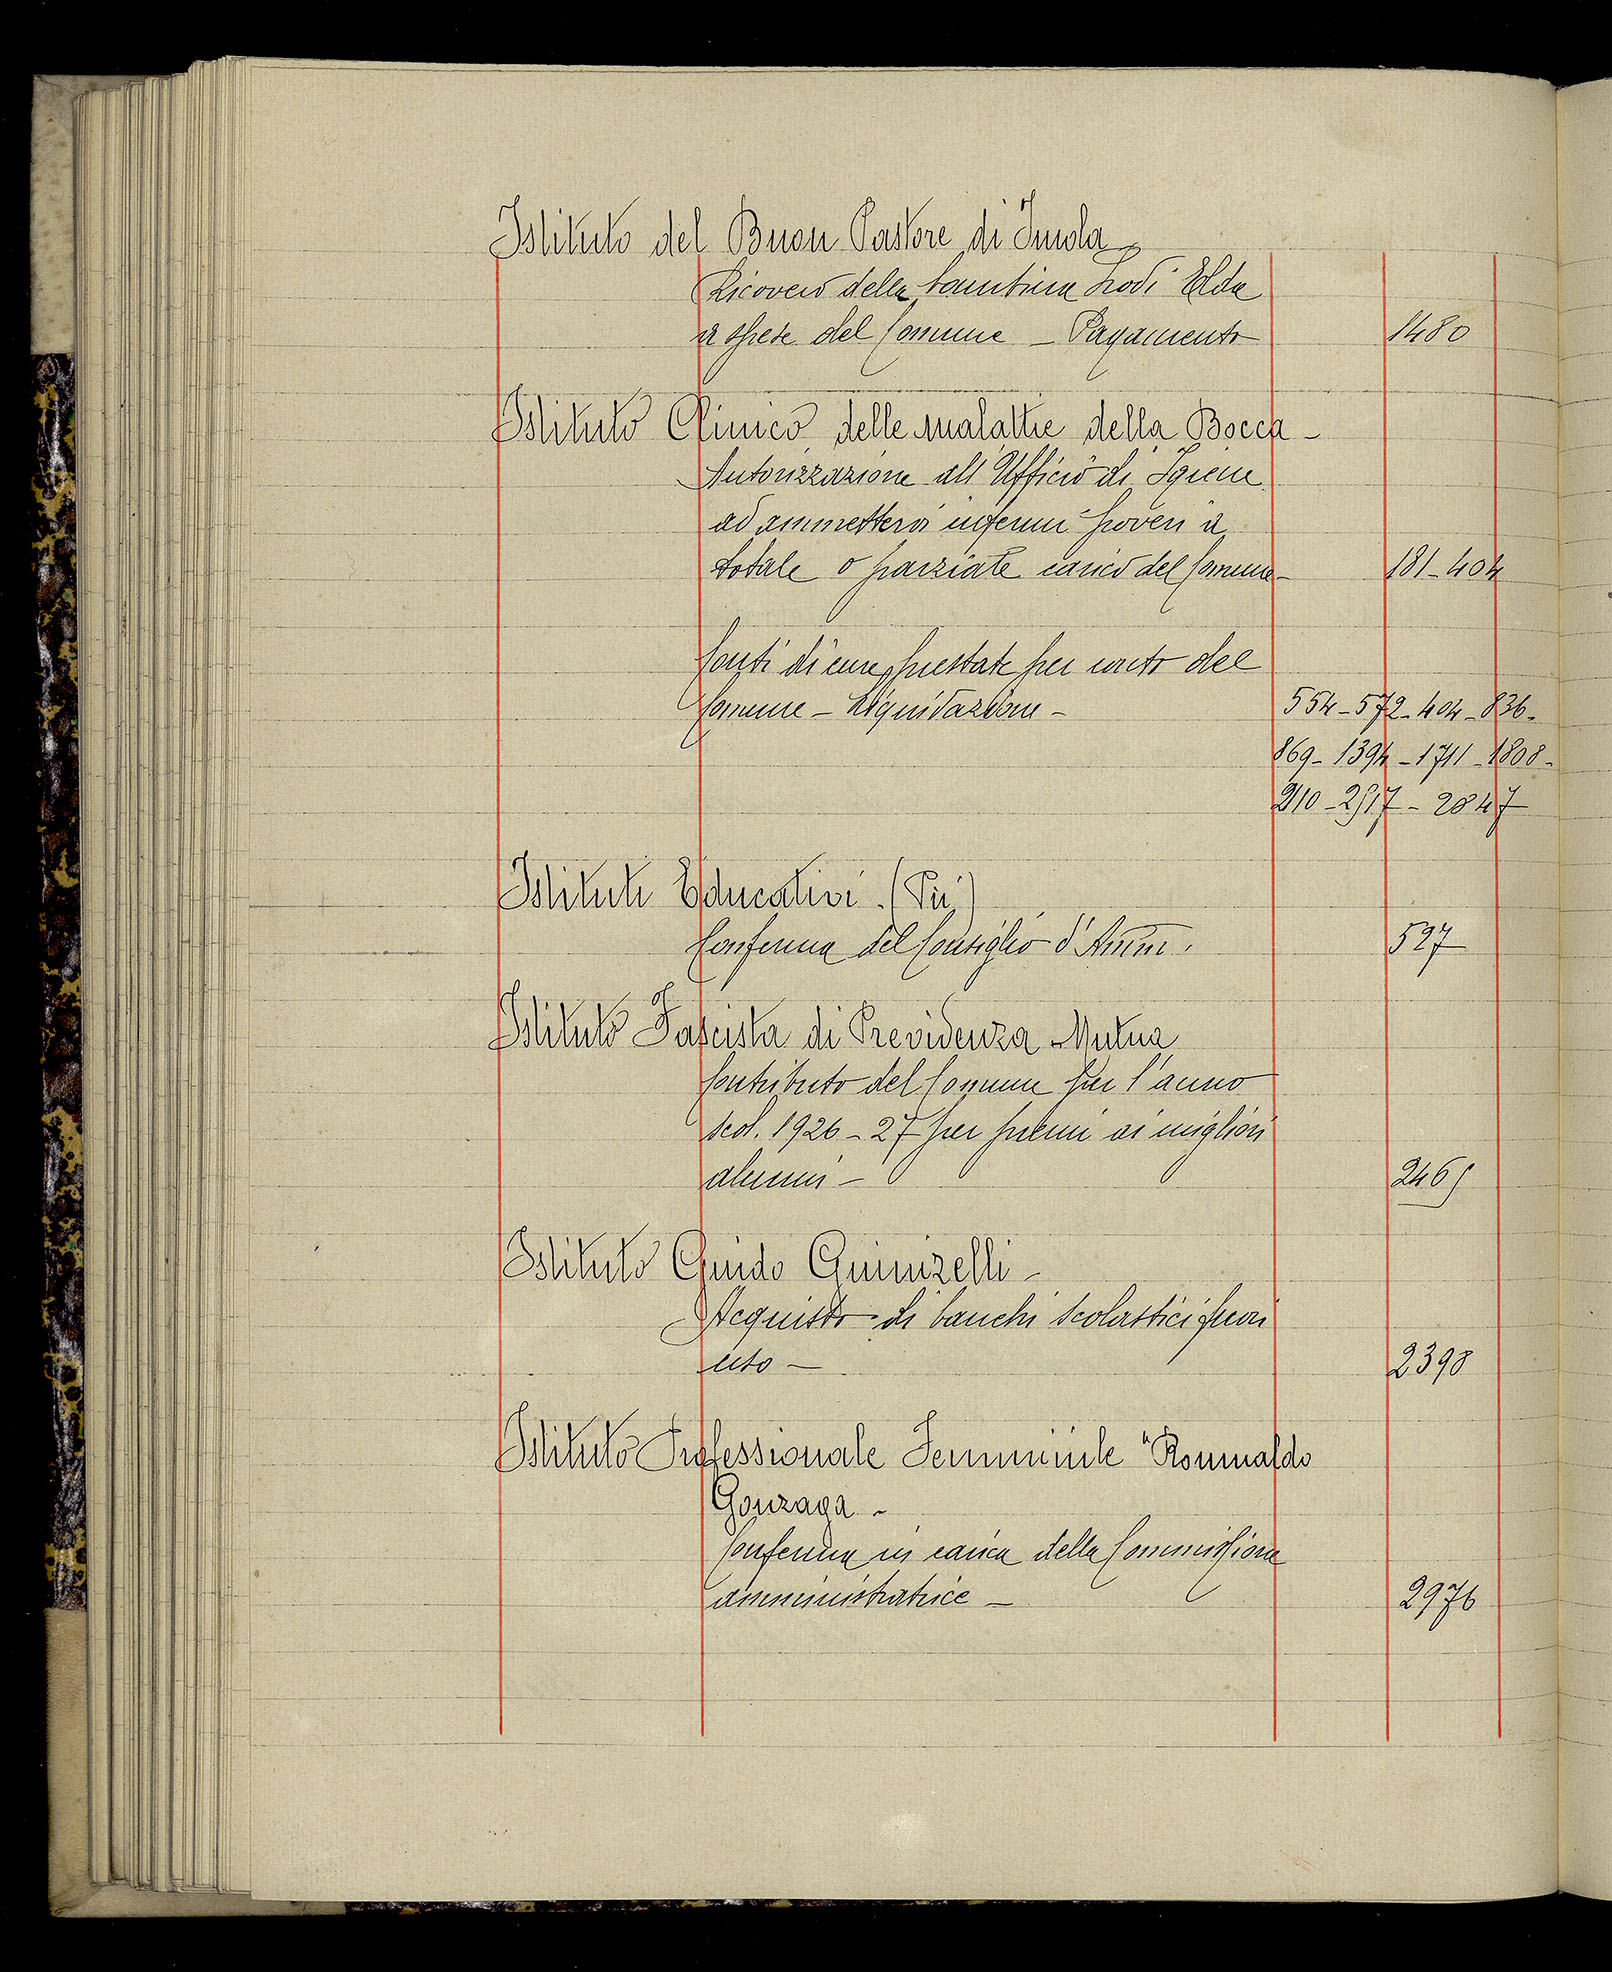 Istituto del Buon Pastore di Imola
Ricovero della bambina Lodi Elda
a spese del Comune - Pagamento 1480
Istituto Clinico delle malattie della Bocca -
Autorizzazione all'Ufficio di Igiene
ad ammettervi infermi poveri a
totale o parziale carico del Comune - 181-404
Conti di cure prestate per conto del
Comune - Liquidazione - 554-572-404-836-
869-1394-1711-1808-
-2847
Istituti Educativi (Pii)
Conferma del Consiglio d'Amm. 527
Istituto Fascista di Previdenza Mutua
Contributo del Comune per l'anno
scol. 1926-27 per premi ai migliori
alunni - 2465
Istituto Guido Guinizelli -
Acquisto di banchi scolastici fuori
uso - 2398
Istituto Professionale Femminile "Romualdo
Gonzaga -
Conferma in carica della Commissione
amministratrice - 2976